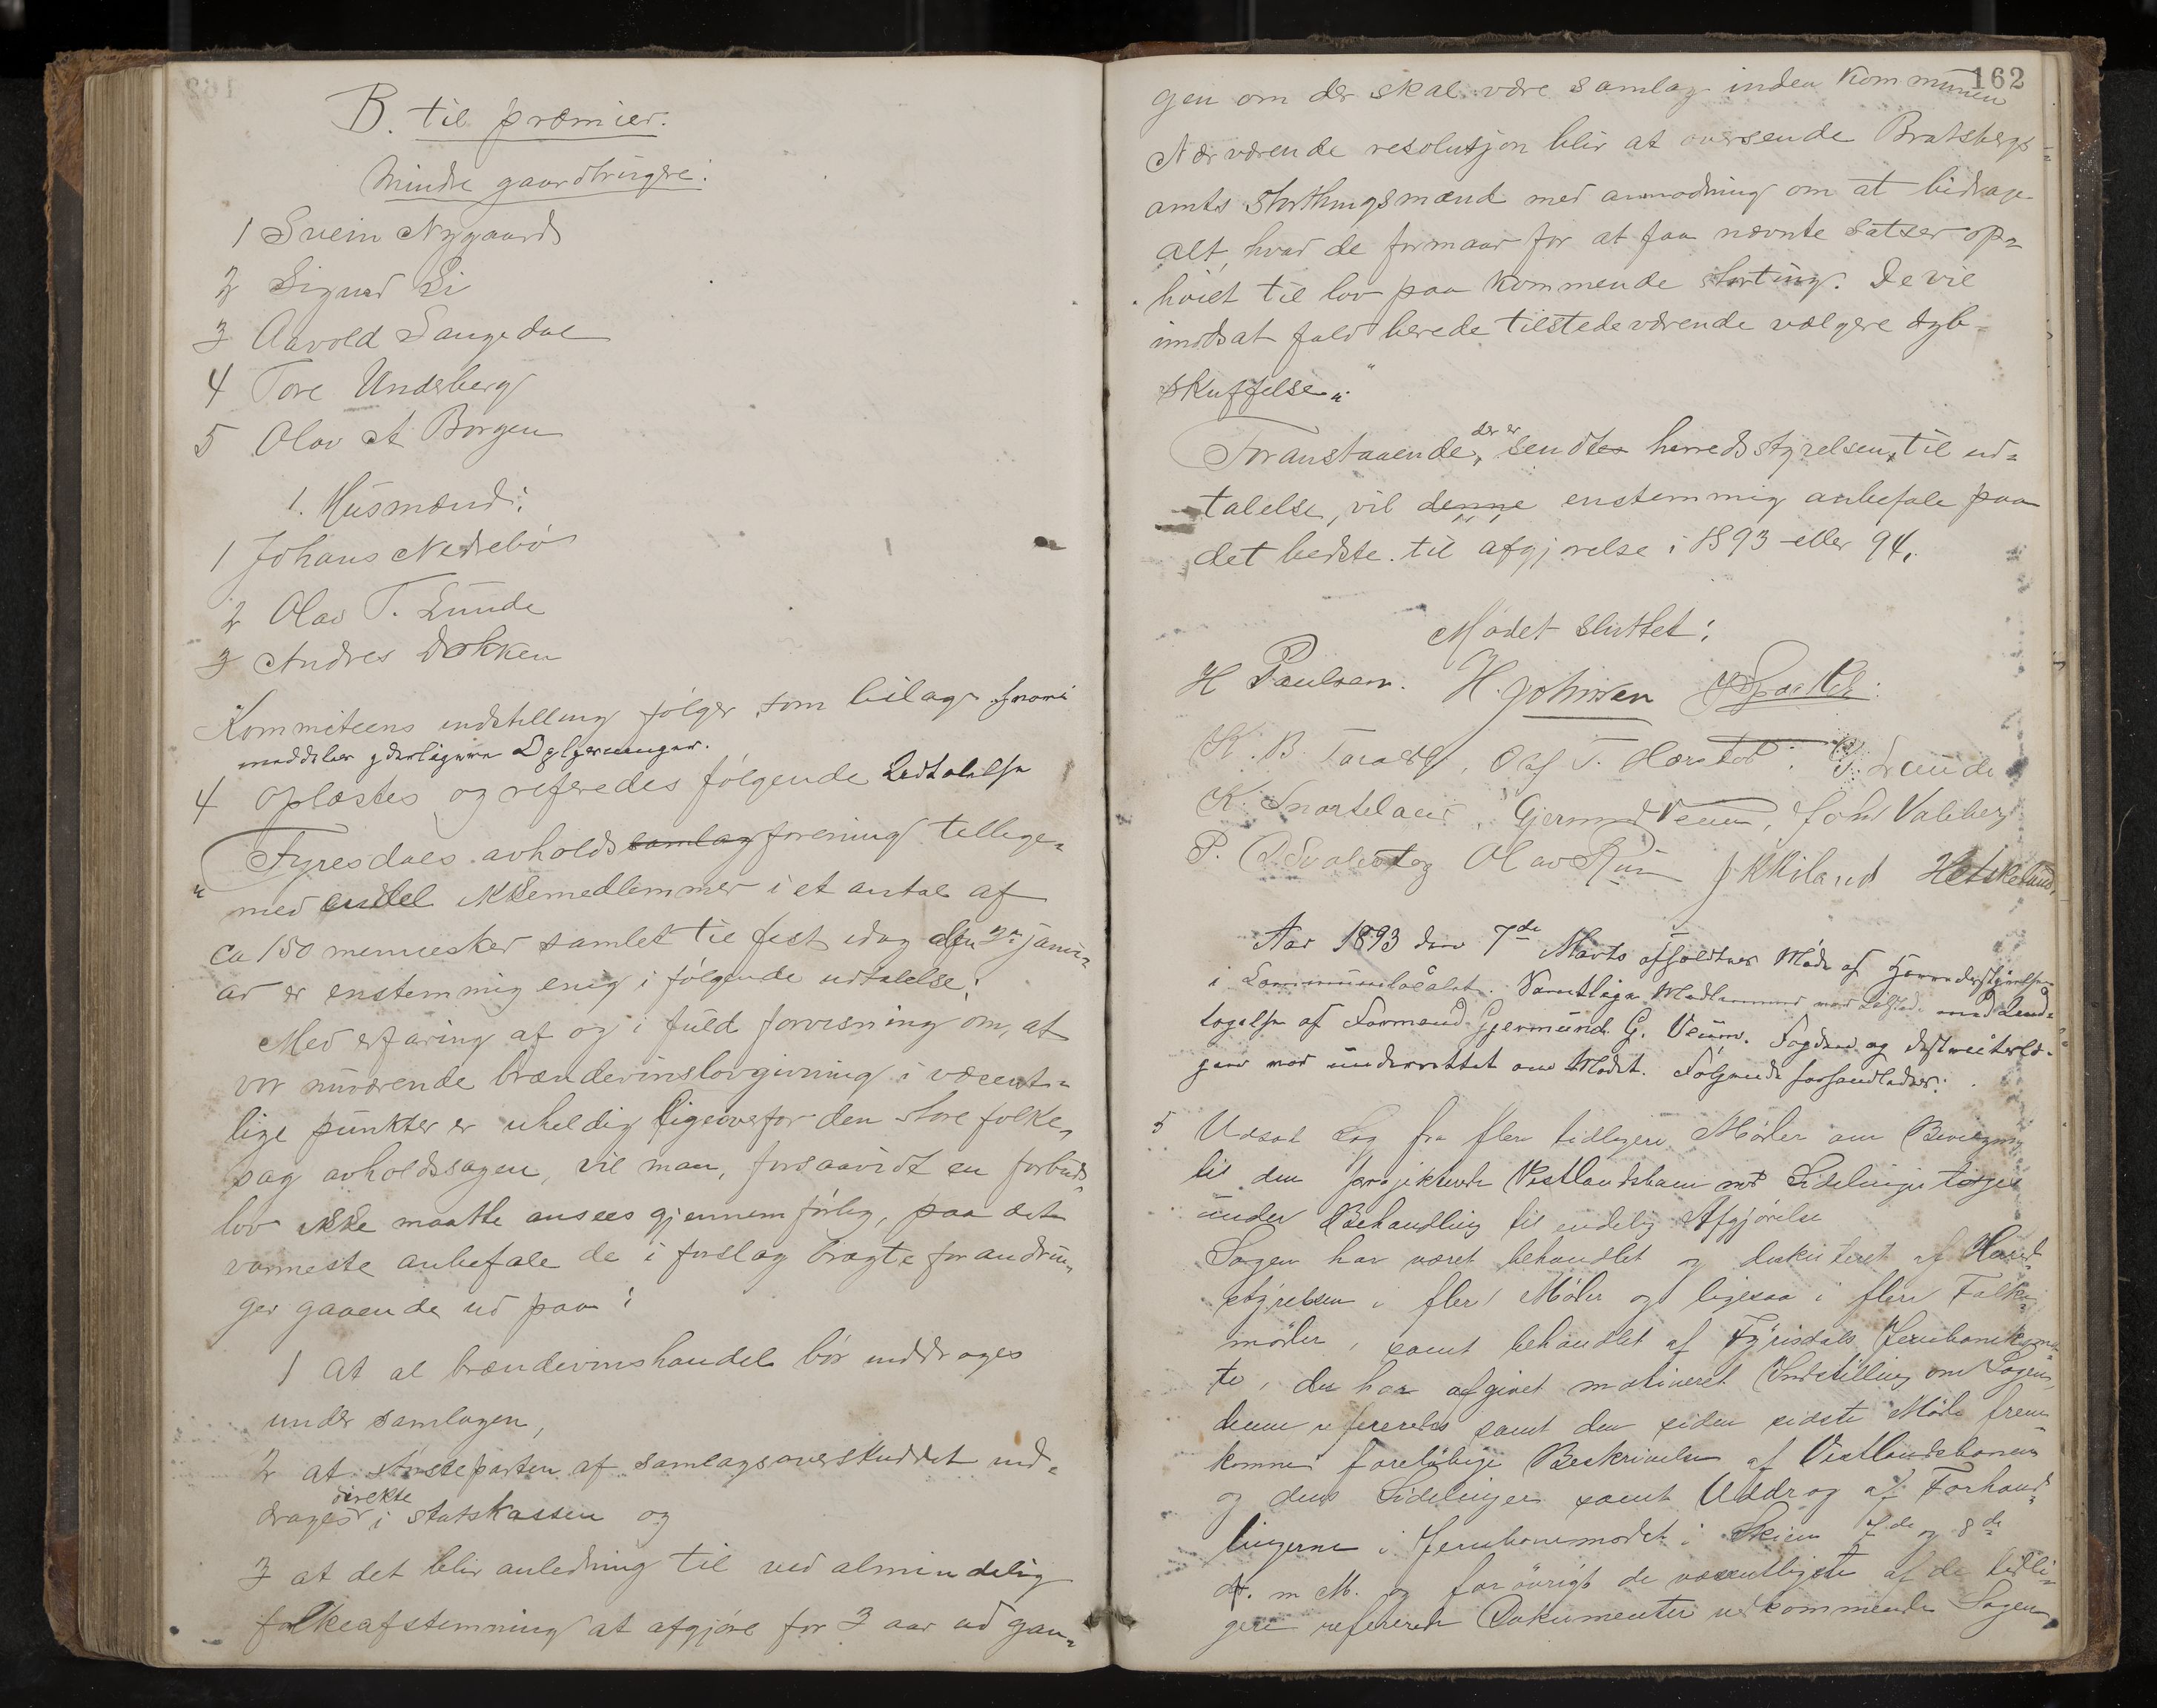 B. til præmier.
Mindre gaardbrugere:
1 Svein Nygaard
2 Sigurd Li
3 Aavold Laugedal
4 Tore Undsberg
5 Olav A Borgen
1. Husmænd:
1 Johans Nedrebø
2 Olav T. Lunde
3 Andres Dokken
Kommiteens indstilling følger som bilag hvori
meddeles yderligere Oplysninger.
4 Oplæstes og referedes følgende Udtalelse
Fyresdals avholdssamlagforening tillige-
" med endel ikkemedlemmer i et antal af
ca 150 mennesker samlet til fest idag den 2. janu-
ar er enstemmig enig i følgende udtalelse:
Med erfaring af og i fuld forvisning om, at
vor nuværende brændevinslovgivning i væsent-
lige punkter er uheldig ligeoverfor den store folke-
sag avholdssagen, vil man, forsaavidt en forbuds-
lov ikke maatte ansees gjennemførlig, paa det
varmeste anbefale de i forslag bragte forandrin-
ger gaaende ud paa:
1 At al brændevinshandel bør inddrages
under samlagen,
2 at størsteparten af samlagsoverskuddet ind-
direkte
drages i statskassen og
3 at det blir anledning til ved almindelig
folkeafstemning at afgjøre for 3 aar ad gan-
162
gen om der skal være samlag inden kommunen
Nærværende resolutjon blir at oversende Bratsbergs
amts stortingsmænd med anmodning om at bidrage
alt, hvad de formaar for at faa nævnte satser op-
høiet til lov paa kommende storting. De vil
imodsat fald berede tilstedeværende vælgere dyb
skuffelse."
der er
Foranstaaende, sendtes herredsstyrelsen, til ud-
talelse, vil denne enstemmig anbefale paa
det bedste til afgjørelse i 1893 eller 94.
Mødet sluttet:
H Paulsen. H. Johnsen
K. B. Taraldli, Olaf T. Hærstad: T. Lunde
K. Snarteland, Gjermund Veum, John Valeberg
P. O. Svalestog Olav Rui J K Kiland
Aar 1893 den 7de Marts afholdtes Møde af Herredsstyrelsen
i Kommunelocalet. Samtlige Medlemmer var tilsted med Und-
tagelse af Formand Gjermund G. Veum. Fogden og distriktslæ-
gen var underrettet om Mødet. Følgende forhandledes:
5 Udsat Sag fra flere tidligere Møder om Bevilgning
til den projekterede Vestlandsbane med Sidelinjer toges
under Behandling til endelig Afgjørelse
Sagen har været behandlet og diskuteret af Herred-
styrelsen i flere Møder og ligesaa i flere Folke-
møder, samt behandlet af Fyrisdals Jernbanekomi-
te, der har afgivet motiveret Indstilling om Sagen,
denne refereredes samt den siden sidste Møde frem
komne foreløbige Beskrivelse af Vestlandsbanen
og dens Sidelinjer samt Uddrag af Forhand-
lingerne i Jernbanemødet i Skien 7de og 8de
d. m M. og forøvrigt de væsentligste af de tidli-
gere refererede Dokumenter vedkommende Sagen